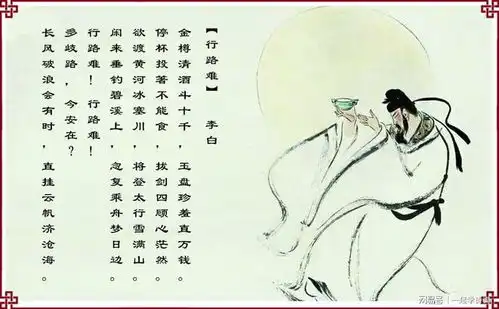 【行路难】
李白
金樽清酒斗十千，玉盘珍羞直万钱。
停杯投著不能食，拔剑四顾心茫然。
欲渡黄河冰塞川，将登太行雪满山。
闲来垂钓碧溪上，忽复乘舟梦日边。
行路难！行路难！
多歧路，今安在？
长风破浪会有时，直挂云帆济沧海。
网易号 | 一起学